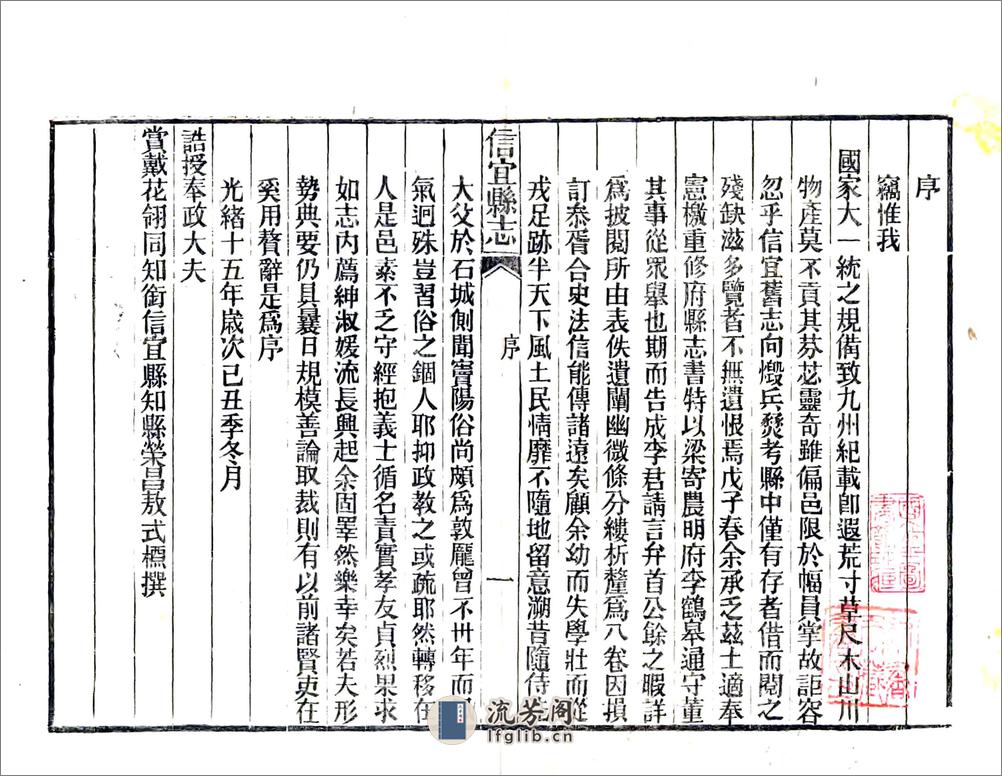 序
竊惟我
國家大一統之規備致九州紀載卽遐荒寸草尺木山川
物產莫不貢其芬苾靈奇雖偏邑限於幅員掌故詎容
忽乎信宜舊志向燬兵燹考縣中僅有存者借而閱之
殘缺滋多覽者不無遺恨焉戊子春余承乏茲土適奉
憲檄重修府縣志書特以梁寄農明府李鶴皋通守董
其事從眾舉也期而告成李君請言弁首公餘之暇詳
爲披閱所由表佚遺闡幽微條分縷析釐爲八卷因損
訂叅胥合史法信能傳諸遠矣顧余幼而失學壯而從
戎足跡半天下風土民情靡不隨地留意溯昔隨侍
信宜縣志
序
一
大父於石城側聞竇陽俗尚頗爲敦龐曾不卅年而
氣迥殊豈習俗之錮人耶抑政教之或疏耶然轉移在
人是邑素不乏守經抱義士循名責實孝友貞烈果求
如志內薦紳淑媛流長興起余固睪然樂幸矣若夫形
勢典要仍具曩日規模善論取裁則有以前諸賢吏在
奚用贅辭是爲序
光緒十五年歲次己丑季冬月
誥授奉政大夫
賞戴花翎同知銜信宜縣知縣榮昌敖式槱撰
流芳阁
lfglib.cn